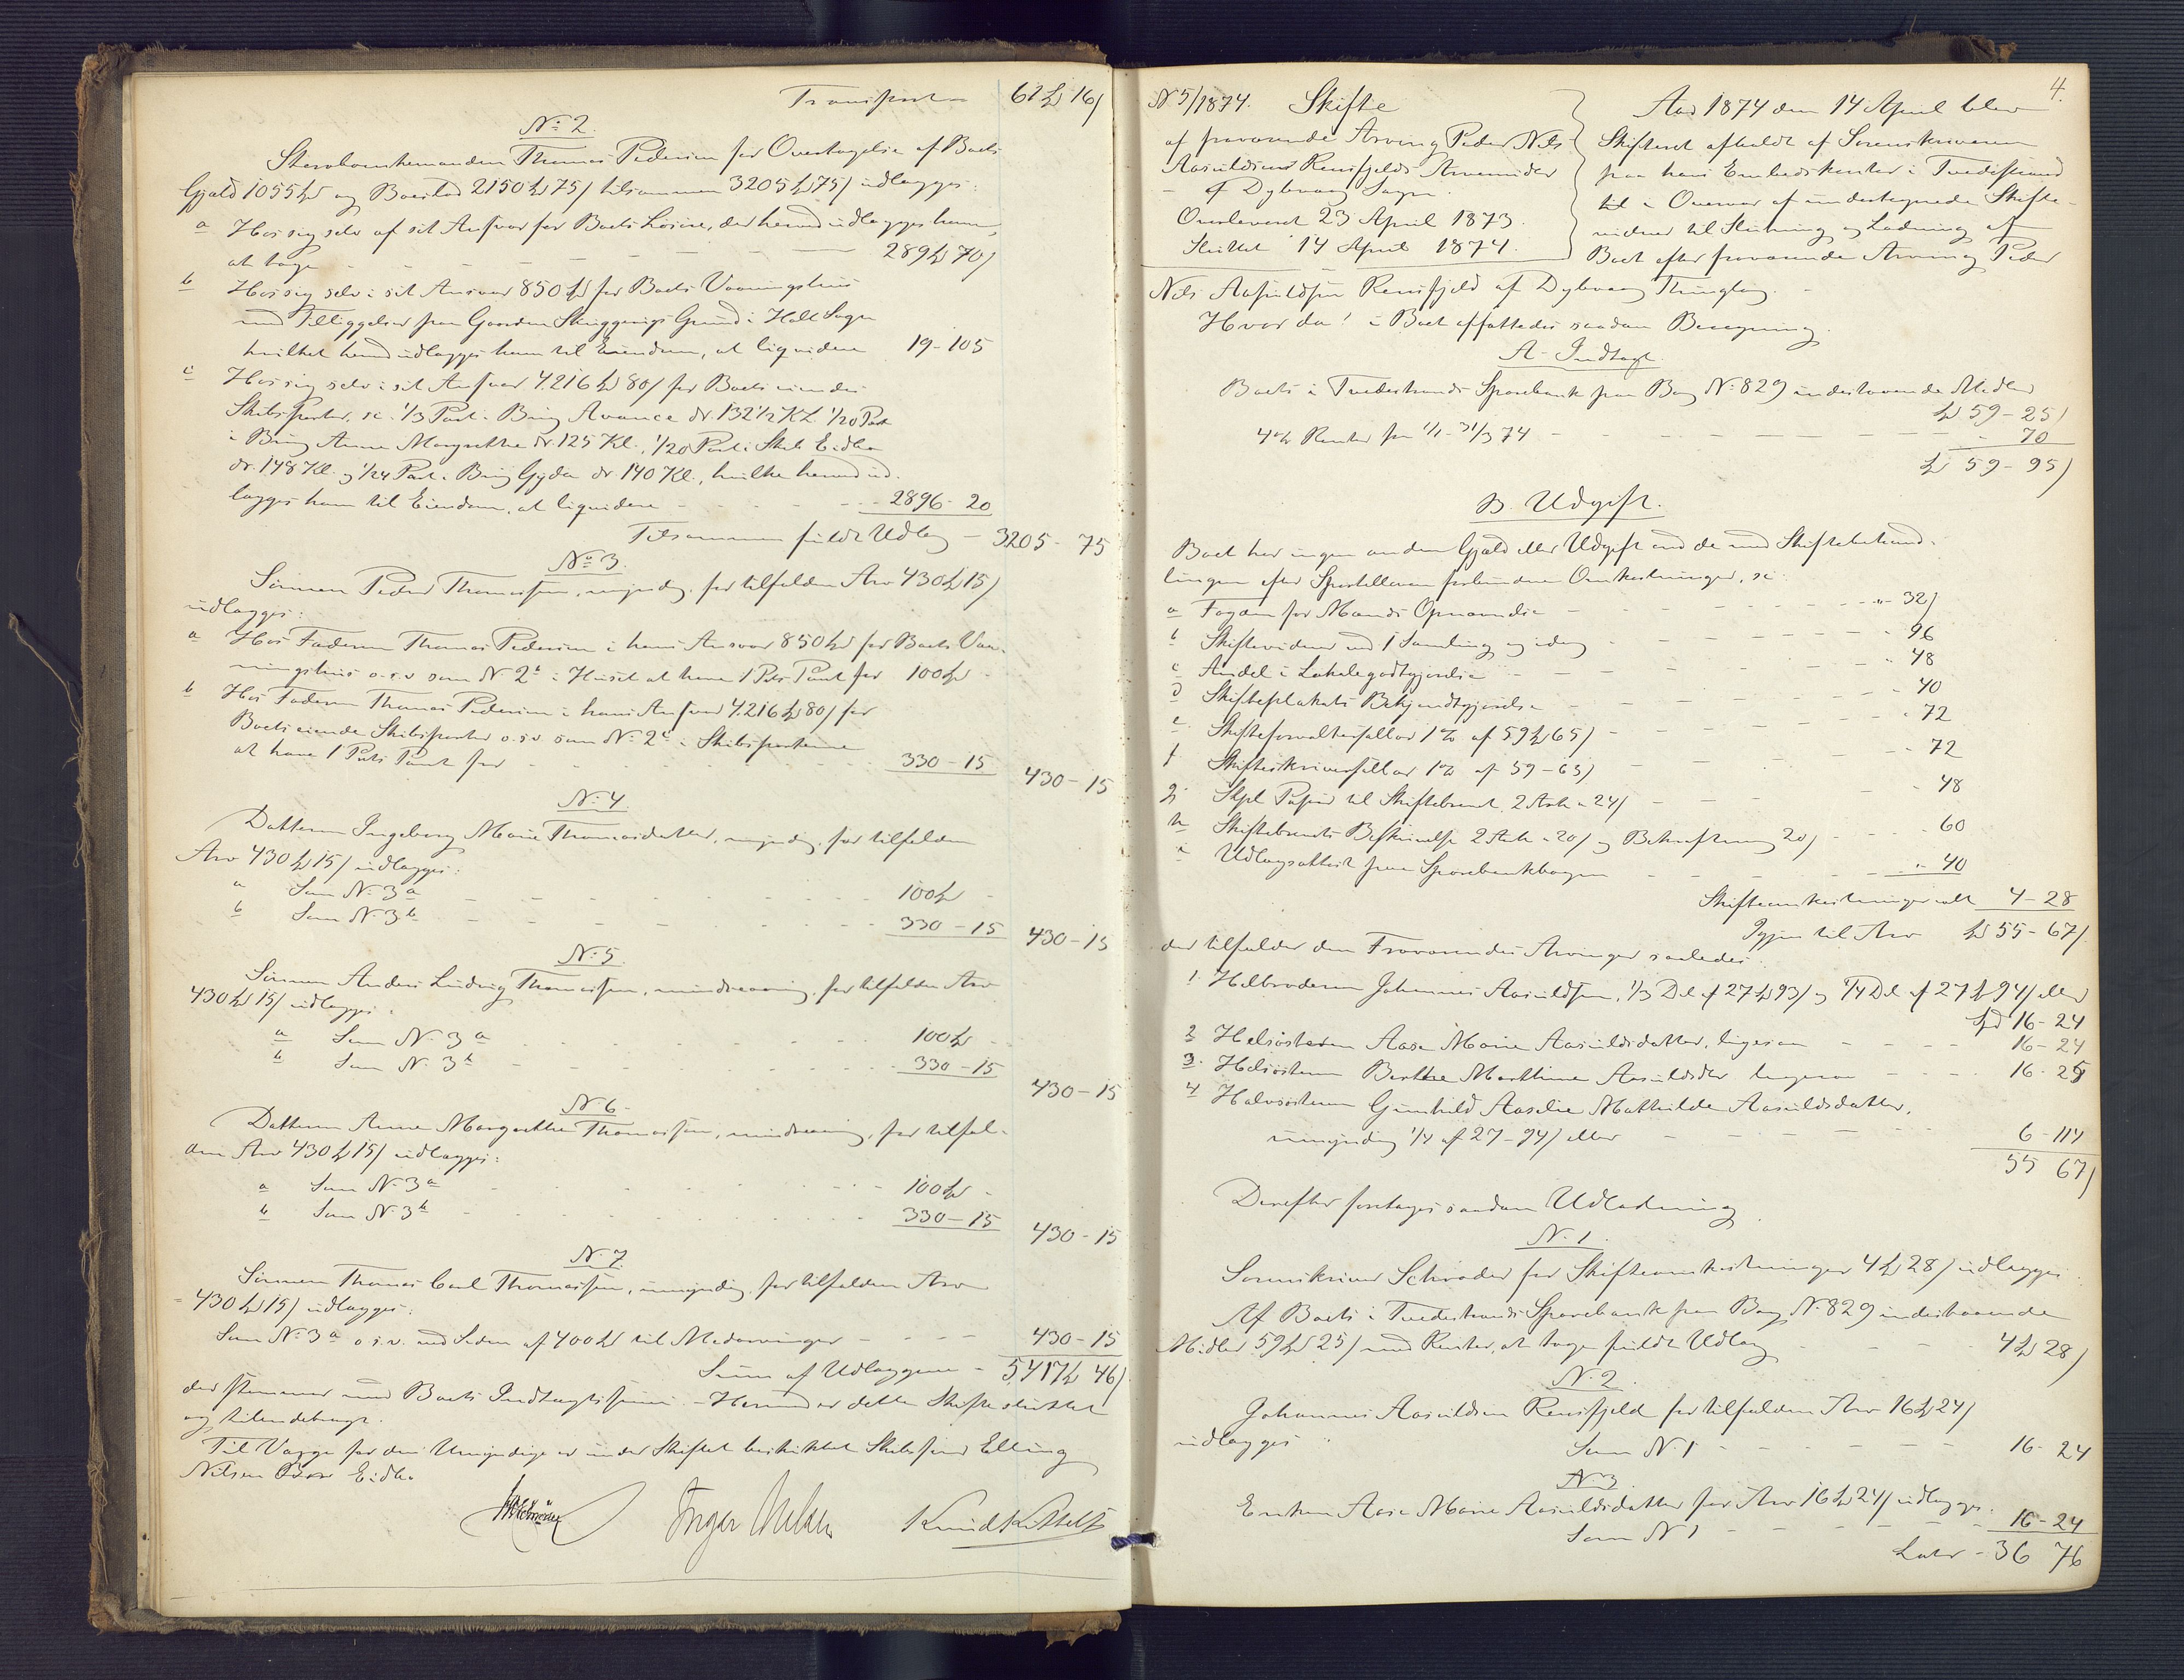 Transport 61 Sp 16/
No 2.
Thomas Pedersen for Overtagelse af Boets
Gjæld 1055 Sp og Boeslod 2150 Sp 75/ tilsammen 3205 Sp 75/ udlægges:
a Hos sig selv af sit Ansvar for Boets Løsøre, der herved udlægges ham,
at tage 289 Sp 70/
b Hos sig selv i sit Ansvar 850 Sp for Boets Vaaningshus
med Tilliggelser paa Gaarden Grund i Holt Sogn
hvilket herved udlægges ham til Eiendom, at liqvidere 19-105
c Hos sig selv i sit Ansvar 4.216 Sp 80/ for Boets eiendes
Skibsparter, sc. 1/3 Part i Brig Avance dr. 132 1/2 KL 1/20 Part
i Brig Anne Margrethe dr 125 Kl., 1/20 Part i Skib Eidbo
dr. 148 Kl. og 1/24 Part i Brig Gyda dr 140 Kl., hvilke herved ud-
lægges ham til Eiendom, at liqvidere 2896-20
Tilsammen fuldt Udlæg - 3205-75
No 3.
Sønnen Peder Thomassen, umyndig, for tilfalden Arv 430 Sp 15/
udlægges:
a Hos Faderen Thomas Pedersen i hans Ansvar 850 Sp for Boets Vaa-
ningshus o.s.v. som No 2b i Huset at have 1 Pr. Pant for 100 Sp
b Hos Faderen Thomas Pedersen i hans Ansvar 4.216 Sp 80/ for
Boets eiende Skibsparter o.s.v. som No 2c i Skibsparterne
at have 1 Prs. Pant for 330-15 430-15
No 4.
Datteren Ingeborg Marie Thomasdatter, umyndig, for tilfalden
Arv 430 Sp 15/ udlægges:
a Som No 3a 100 Sp
b Som No 3b 330-15 430-15
No 5.
Sønnen Anders Ludvig Thomassen, mindreaarig, for tilfalden Arv
430 Sp 15/ udlægges:
a Som No 3a 100 Sp
b Som No 3b 330-15
430-15
No 6.
Datteren Anne Margrethe Thomassen, mindreaarig, for tilfal-
den Arv 430 Sp 15/ udlægges:
a Som No 3a 100 Sp
b Som No 3b 330-15
430-15
No 7.
Sønnen Thomas Carl Thomassen, umyndig, for tilfalden Arv
430 Sp 15/ udlægges:
Som No 3a o.s.v. med Siden af 400 Sp til Medarvinger 430-15
Sum af Udlæggene - 5,417 Sp 46/
der stemmer med Boets Indtægtssum - Hermed er dette Skifte sluttet
og tilendebragt.
Til Værge for de Umyndige er under Skiftet beskikket Elling
Nilsen Eidbo
Schrøder Inger Nilsen Knud Kittels

4.
No 5/1874. Skifte
af fraværende Arving Peder Nils
Aasuldsens Rensfjelds Arvemidler
af Dybvaag Sogn.
Overleveret 23 April 1873.
Sluttet 14 April 1874.
Aar 1874 den 14 April blev
Skifteret afholdt af Sorenskriveren
paa hans Embedskontor i Tvedestrand
til i Overvær af undertegnede Skifte-
vidner til Slutning og Lodning af
Boet efter fraværende Arving Peder
Nils Aasuldsen Rensfjeld af Dybvaag Thinglag.
Hvor da! i Boet affattedes saadan Beregning.
A. Indtægt.
Boets i Tvedestrands Sparebank paa Bog No 829 indestaaende Midler
Sp 59-25/
4% Renter fra 1/1-31/3 74 70
Sp 59-95/
B. Udgift.
Boet har ingen anden Gjæld eller Udgift end de med Skiftebehand-
lingen efter Sportelloven forbundne Omkostninger, sc:
a Fogden for Mænds Opnævnelse 32/
b Skiftevidner ved 1 Samling og idag 96
c Andel i Lokalegodtgjørelse 48
d Skifteplakats Bekjendtgjørelse 40
e Skifteforvaltersallær 1% af 59 Sp 65/ 72
f Skifteskriversallær 1% af 59-65/ 72
g Stpl. Papir til Skiftebrevet 2 Ark a 24/ 48
h Skiftebrevets Beskrivelse 2 Ark a 20/ og Bekræftning 20/ 60
i Udlægsattest paa Sparebankbogen 40
Skifteomkostninger ialt 4-28
Igjen til Arv Sp 55-67/
der tilfalder den Fraværendes Arvinger saaledes:
1. Helbroderen Johannes Aasuldsen, 1/3 Del af 27 Sp 93/ og 1/4 Del af 27 Sp 94/ eller
Spd 16-24
2 Helsøsteren Aase Marie Aasuldsdatter, ligesom 16-24
3. Helsøsteren Berthe Marthine Aasuldsdtr ligesom 16-25
4 Halvsøsteren Gunhild Aaselie Mathilde Aasuldsdatter,
umyndig 1/4 af 27-94/ eller 6-114
55 67/
Derefter foretages saadan Udlodning
No 1.
Sorenskriver Schrøder for Skifteomkostninger 4 Sp 28/ udlægges:
Af Boets i Tvedestrands Sparebank paa Bog No 829 indestaaende
Midler 59 Sp 25/ med Renter, at tage fuldt Udlæg 4 Sp 28/
No 2.
Johannes Aasuldsen Rensfjeld for tilfalden Arv 16 Sp 24/
udlægges
Som No 1 16-24
No 3
Enken Aase Marie Aasuldsdatter for Arv 16 Sp 24/ udlægges:
Som No 1 16-24
Latus - 36 76